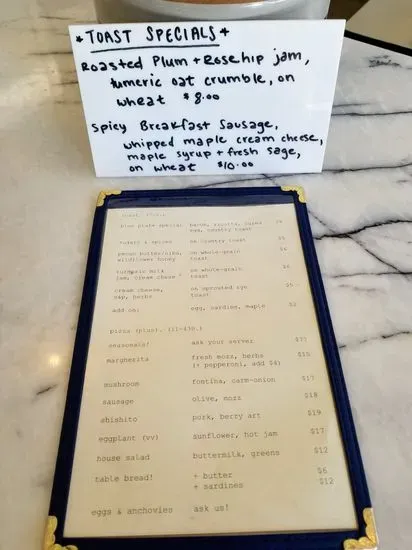 * TOAST SPECIALS *
Roasted Plum + Rosehip jam,
tumeric oat crumble, on
wheat $8.00
Spicy Breakfast Sausage,
whipped maple cream cheese,
maple syrup + fresh sage,
on wheat $10.00
blue plate special bacon, ricotta,
egg, country toast
sugars & spices on country toast $5
pecan butter/oiko, on whole-grain $6
wildflower honey toast
turmeric milk on whole-grain $6
jam, cream cheese toast
cream cheese, on sprouted rye $5
herbs toast
add on: egg, sardine, maple $2
pizza (plus). (11-430.)
seasonals! ask your server
margherita fresh mozz, herbs $15
(+ pepperoni, add $4)
mushroom fontina, carm-onion $17
sausage olive, mozz $18
shishito pork, berry art $19
eggplant (vv) sunflower, hot jam $17
house salad buttermilk, greens $12
table bread! + butter $6
+ sardines $12
eggs & anchovies ask us!